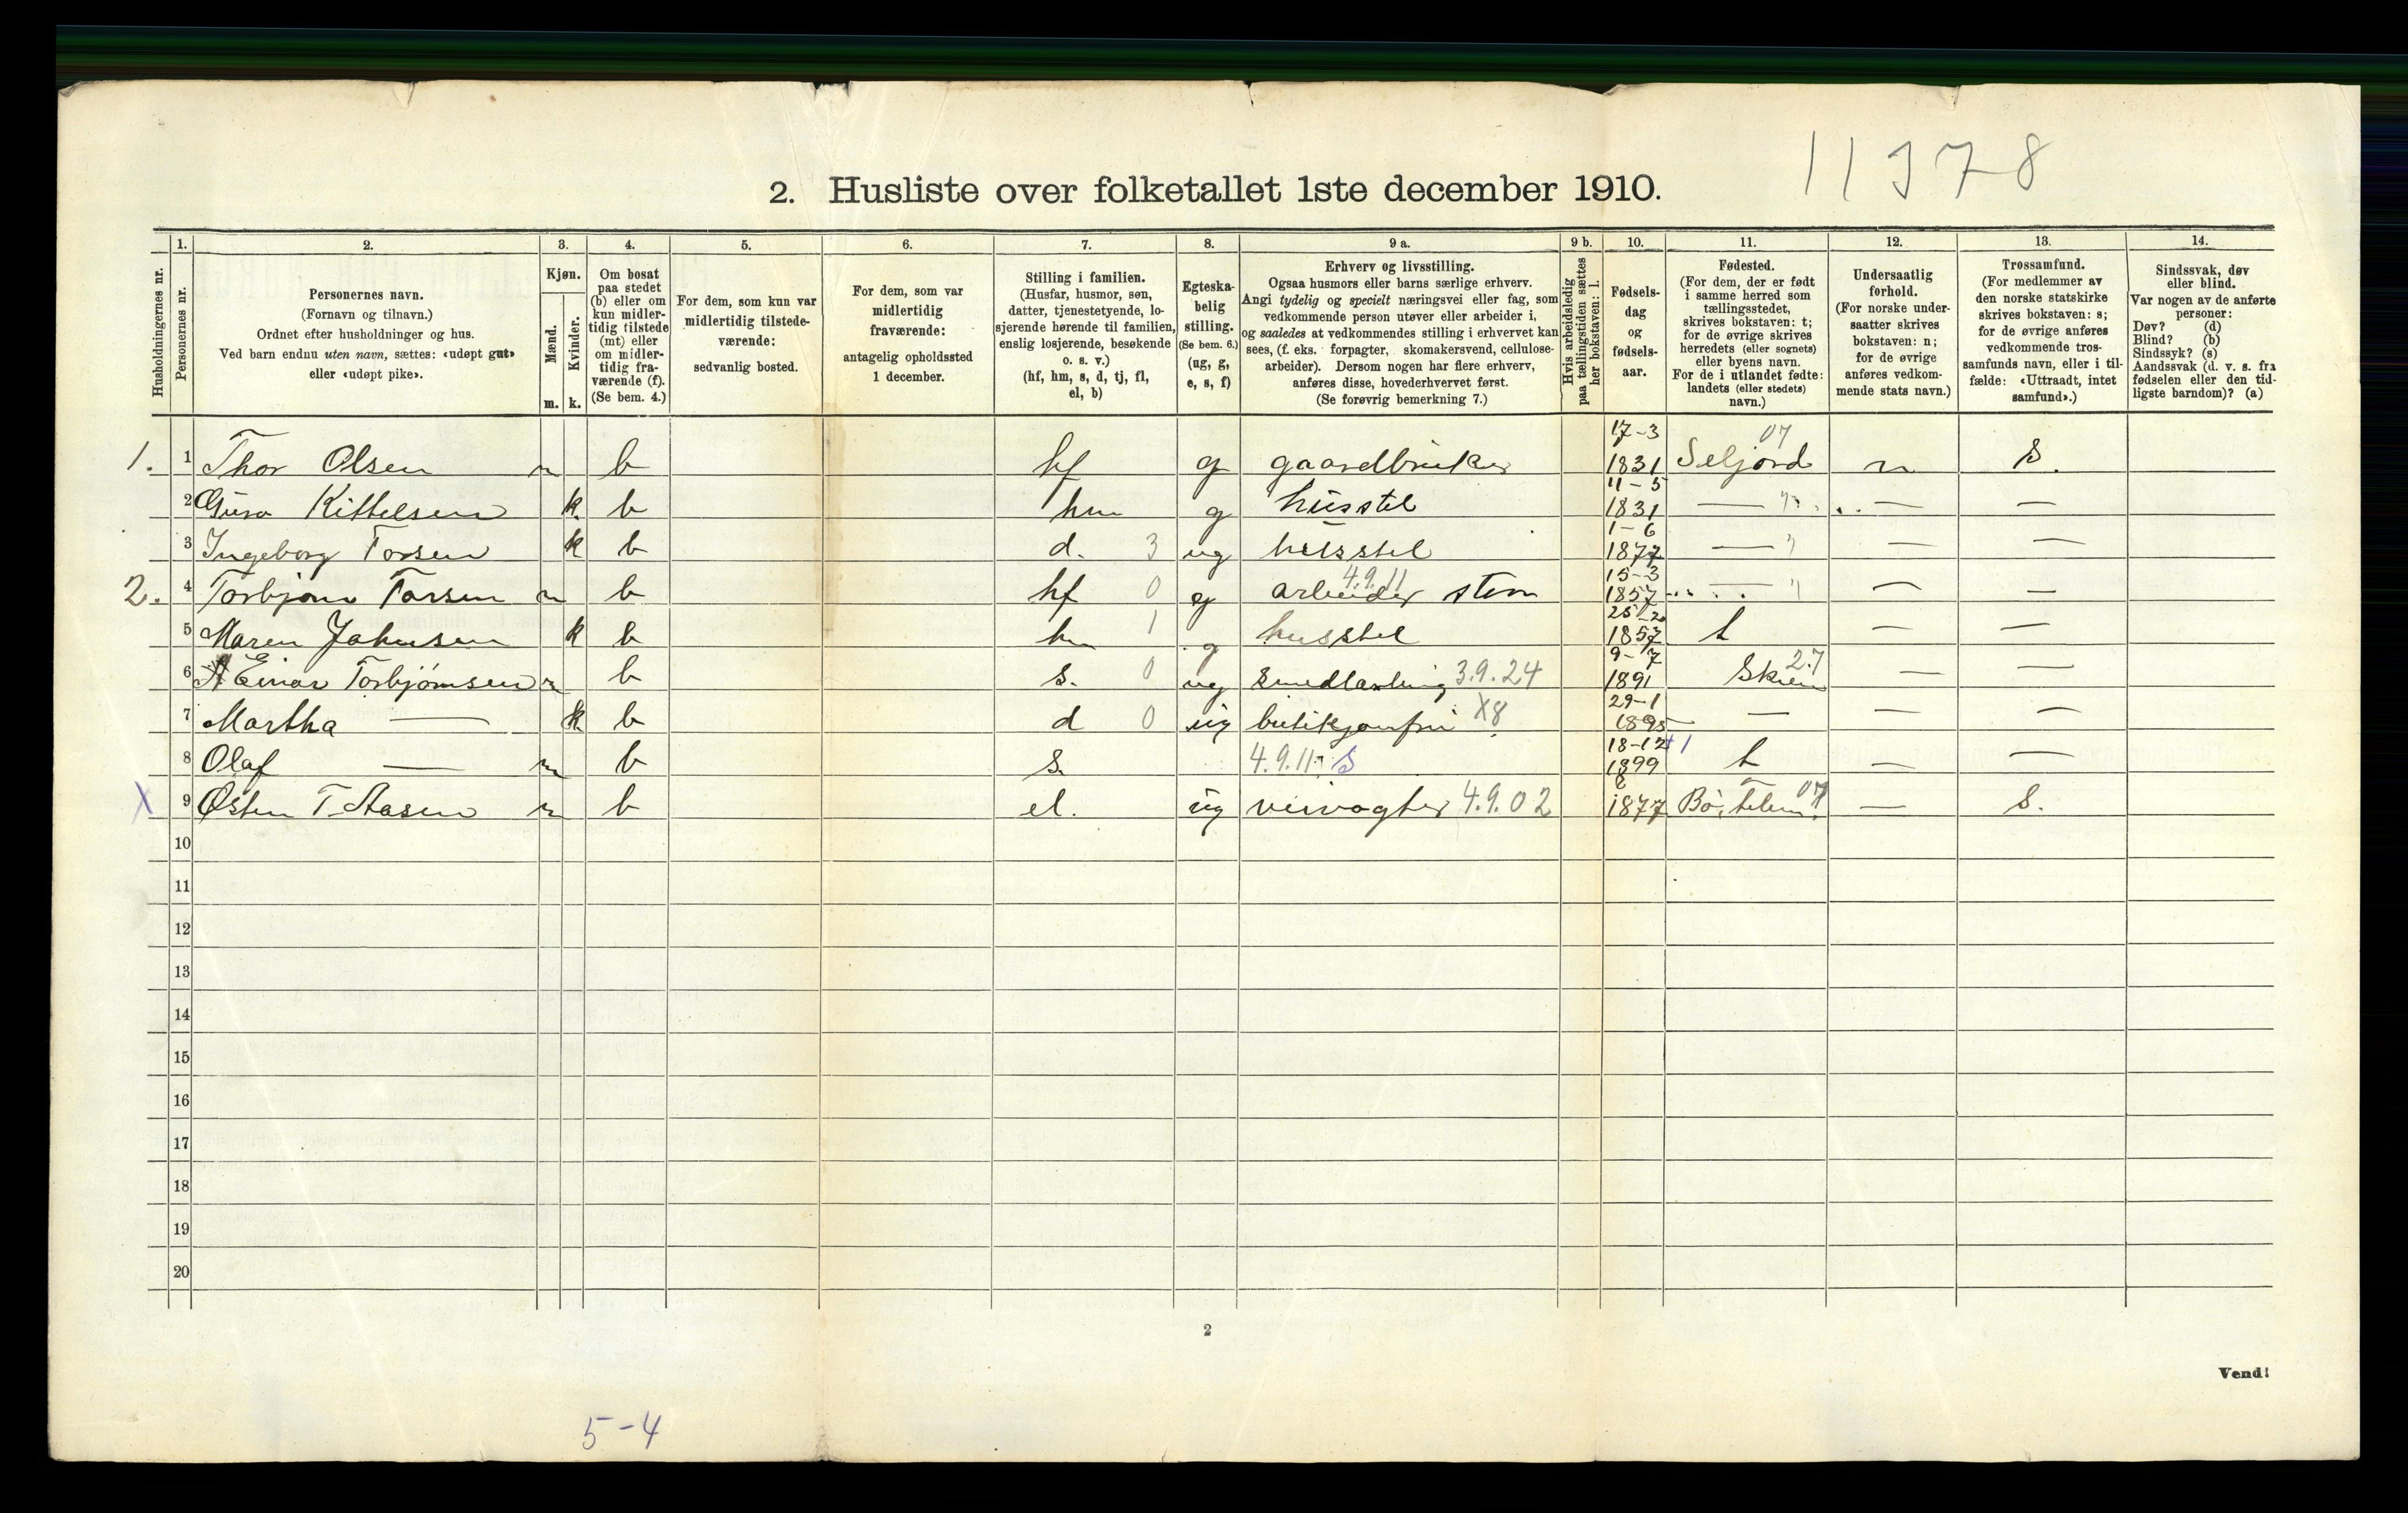 11378
2. Husliste over folketallet 1ste december 1910.
1. 2. 3. 4. 5. 6. 7. 8. 9 a. 9 b. 10. 11. 12. 13. 14.
Husholdningernes nr.
Personernes nr.
Personernes navn.
(Fornavn og tilnavn.)
Ordnet efter husholdninger og hus.
Ved barn endnu uten navn, sættes: «udøpt gut»
eller «udøpt pike».
Kjøn.
Mænd.
Kvinder.
m. k.
Om bosat
paa stedet
(b) eller om
kun midler-
tidig tilstede
(mt) eller
om midler-
tidig fra-
værende (f).
(Se bem. 4.)
For dem, som kun var
midlertidig tilstede-
værende:
sedvanlig bosted.
For dem, som var
midlertidig
fraværende:
antagelig opholdssted
1 december.
Stilling i familien.
(Husfar, husmor, søn,
datter, tjenestetyende, lo-
sjerende hørende til familien,
enslig losjerende, besøkende
o. s. v.)
(hf, hm, s, d, tj, fl,
el, b)
Egteska-
belig
stilling.
(Se bem. 6.)
(ug, g,
e, s, f)
Erhverv og livsstilling.
Ogsaa husmors eller barns særlige erhverv.
Angi tydelig og specielt næringsvei eller fag, som
vedkommende person utøver eller arbeider i,
og saaledes at vedkommendes stilling i erhvervet kan
sees, (f. eks. forpagter, skomakersvend, cellulose-
arbeider). Dersom nogen har flere erhverv,
anføres disse, hovederhvervet først.
(Se forøvrig bemerkning 7.)
Hvis arbeidsledig
paa tællingstiden sættes
her bokstaven: l.
Fødsels-
dag
og
fødsels-
aar.
Fødested.
(For dem, der er født
i samme herred som
tællingsstedet,
skrives bokstaven: t;
for de øvrige skrives
herredets (eller sognets)
eller byens navn.
For de i utlandet fødte:
landets (eller stedets)
navn.)
Undersaatlig
forhold.
(For norske under-
saatter skrives
bokstaven: n;
for de øvrige
anføres vedkom-
mende stats navn.)
Trossamfund.
(For medlemmer av
den norske statskirke
skrives bokstaven: s;
for de øvrige anføres
vedkommende tros-
samfunds navn, eller i til-
fælde: «Uttraadt, intet
samfund».)
Sindssvak, døv
eller blind.
Var nogen av de anførte
personer:
Døv? (d)
Blind? (b)
Sindssyk? (s)
Aandssvak (d. v. s. fra
fødselen eller den tid-
ligste barndom)? (a)
1. 1 Thor Olsen m b hf g gaardbruker 17-3 1831 Seljord 07 n s.
2 Guro Kittelsen k. b hm g husstel 11-5 1831 — " — —
3 Ingeborg Torsen k b d. 3 ug husstel 1-6 1877 — " — —
2. 4 Torbjørn Torsen m b hf 0 g arbeider sten 4.9.11 15-3 1857 — " — —
5 Maren Johnsen k b hm 1 g husstel 25-2 1857 t — —
6 Einar Torbjørnsen m b s. 0 ug smedlærling 3.9.24 9-7 1891 Skien 27 — —
7 Martha — k b d 0 ug butikjomfru X8 29-1 1895 — — —
8 Olaf — m b s. 4.9.11 S 18-12 1899 t — —
X 9 Østen T. Aasen m b el. ug veivogter 4.9.02 8 1877 Bø, Telem. 07 — s.
10
11
12
13
14
15
16
17
18
19
20
2
Vend!
5-4